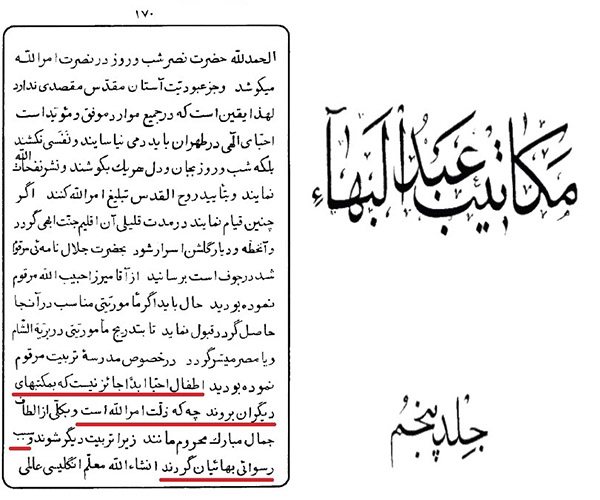 ۱۷۰
الحمدلله حضرت نصر شب و روز در نصرت امرالله
میکوشد وجز عبودیّت آستان مقدّس مقصدی ندارد
لهذا یقین است که در جمیع موارد موفّق و مؤیّد است
احبّای الهی در طهران باید دمی نیاسایند و نَفَسی نکشند
بلکه شب و روز بجان و دل هر یك بکوشند و نشر نفحات الله
نمایند و بتأیید روح القدس تبلیغ امرالله کنند اگر
چنین قیام نمایند در مدت قلیلی آن اقلیم جنّت ابهی گردد
و آنخطّه و دیار گلشن اسرار شود بحضرت جلال نامه ئی مرقوم
شد در جوف است برسانید از آقا میرزا حبیب الله مرقوم
نموده بودید حال باید اگر مأموریّتی مناسب در آنجا
حاصل گردد قبول نماید تا بتدریج مأموریّتی در بریّة الشّام
و یا مصر میسّر گردد در خصوص مدرسهٔ تربیت مرقوم
نموده بودید اطفال احبّا ابداً جائز نیست که بمکتبهای
دیگران بروند چه که ذلّت امرالله است و بکلّی از الطاف
جمال مبارك محروم مانند زیرا تربیت دیگر شوند و سبب
رسوائی بهائیان گردند انشاءالله معلّم انگلیسی عالمی
مَکاتیب عَبدُالبَهاء
جِلد پنجُم